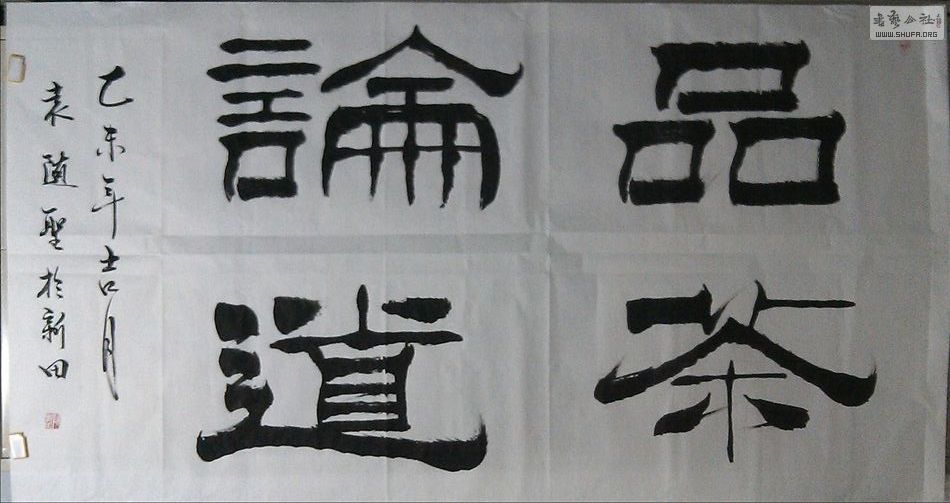 品茶
論道
乙未年吉月
袁随聖於新田
書藝公社
WWW.SHUFA.ORG